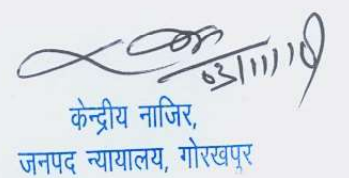 03/11/18
केन्द्रीय नाजिर,
जनपद न्यायालय, गोरखपुर